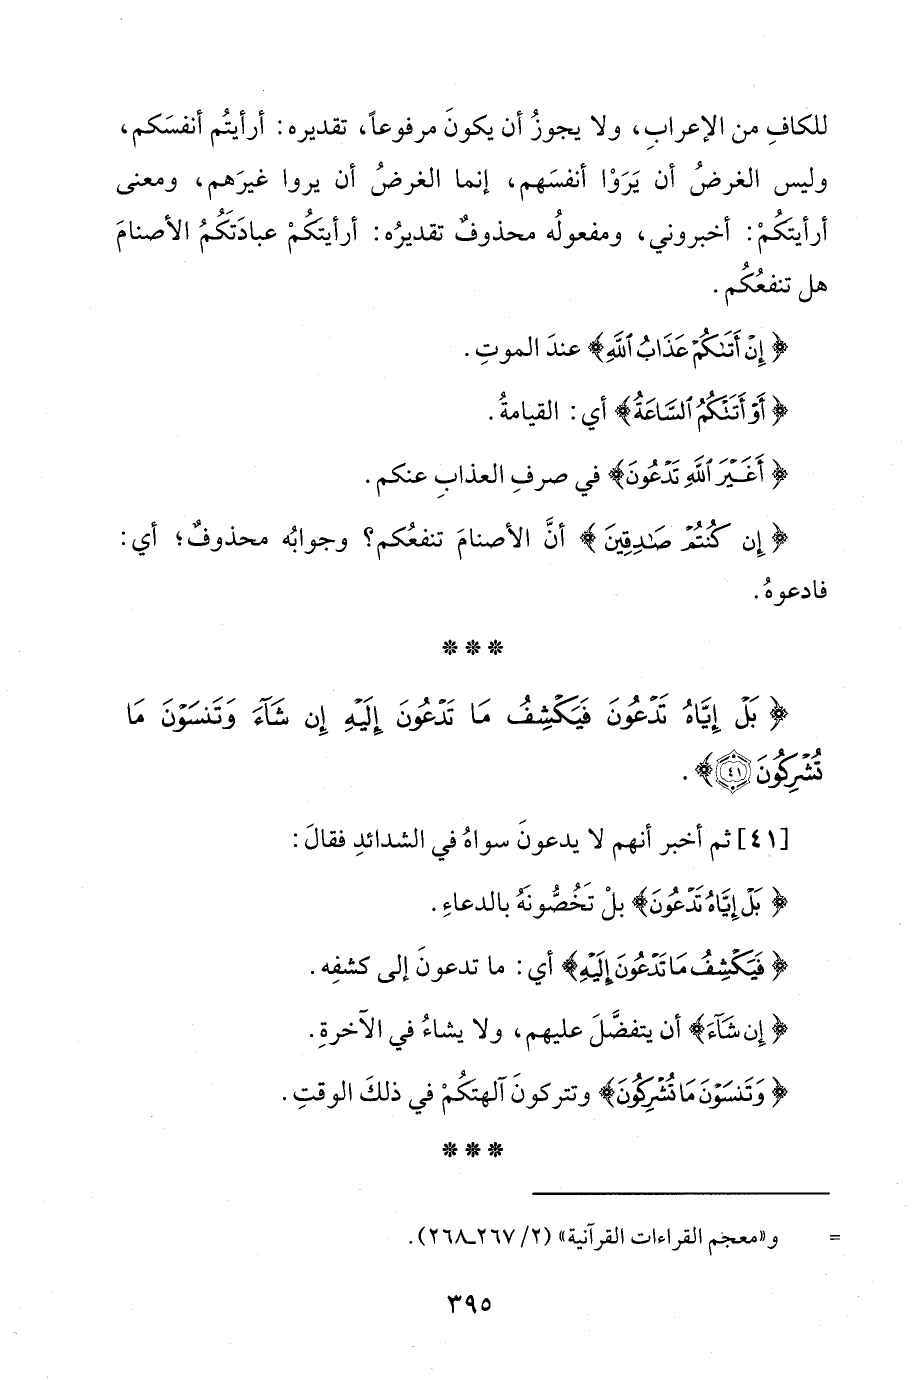 للكافِ من الإعرابِ، ولا يجوزُ أن يكونَ مرفوعاً، تقديره: أرأيتُم أنفسَكم،
وليس الغرضُ أن يَرَوْا أنفسَهم، إنما الغرضُ أن يروا غيرَهم، ومعنى
أرأيتكُمْ: أخبروني، ومفعولُه محذوفٌ تقديرُه: أرأيتكُمْ عبادَتَكُمُ الأصنامَ
هل تنفعُكُم.
﴿إِنْ أَتَىٰكُمْ عَذَابُ ٱللَّهِ﴾ عندَ الموتِ.
﴿أَوْ أَتَتْكُمُ ٱلسَّاعَةُ﴾ أي: القيامةُ.
﴿أَغَيْرَ ٱللَّهِ تَدْعُونَ﴾ في صرفِ العذابِ عنكم.
﴿إِن كُنتُمْ صَٰدِقِينَ﴾ أنَّ الأصنامَ تنفعُكم؟ وجوابُه محذوفٌ؛ أي:
فادعوهُ.
***
﴿بَلْ إِيَّاهُ تَدْعُونَ فَيَكْشِفُ مَا تَدْعُونَ إِلَيْهِ إِن شَآءَ وَتَنسَوْنَ مَا
تُشْرِكُونَ ٤١﴾.
[٤١] ثم أخبر أنهم لا يدعونَ سواهُ في الشدائدِ فقالَ:
﴿بَلْ إِيَّاهُ تَدْعُونَ﴾ بلْ تَخُصُّونَهُ بالدعاءِ.
﴿فَيَكْشِفُ مَا تَدْعُونَ إِلَيْهِ﴾ أي: ما تدعونَ إلى كشفِه.
﴿إِن شَآءَ﴾ أن يتفضَّلَ عليهم، ولا يشاءُ في الآخرةِ.
﴿وَتَنسَوْنَ مَا تُشْرِكُونَ﴾ وتتركونَ آلهتكُمْ في ذلكَ الوقتِ.
***
= و«معجم القراءات القرآنية» (٢/ ٢٦٧_٢٦٨).
٣٩٥